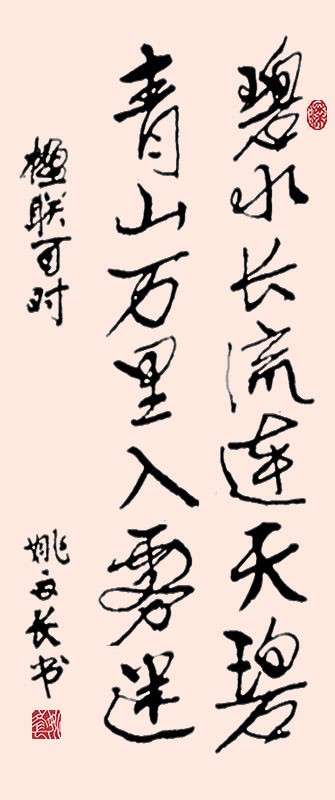 碧水长流连天碧
青山万里入雾迷
楹联
姚 长书